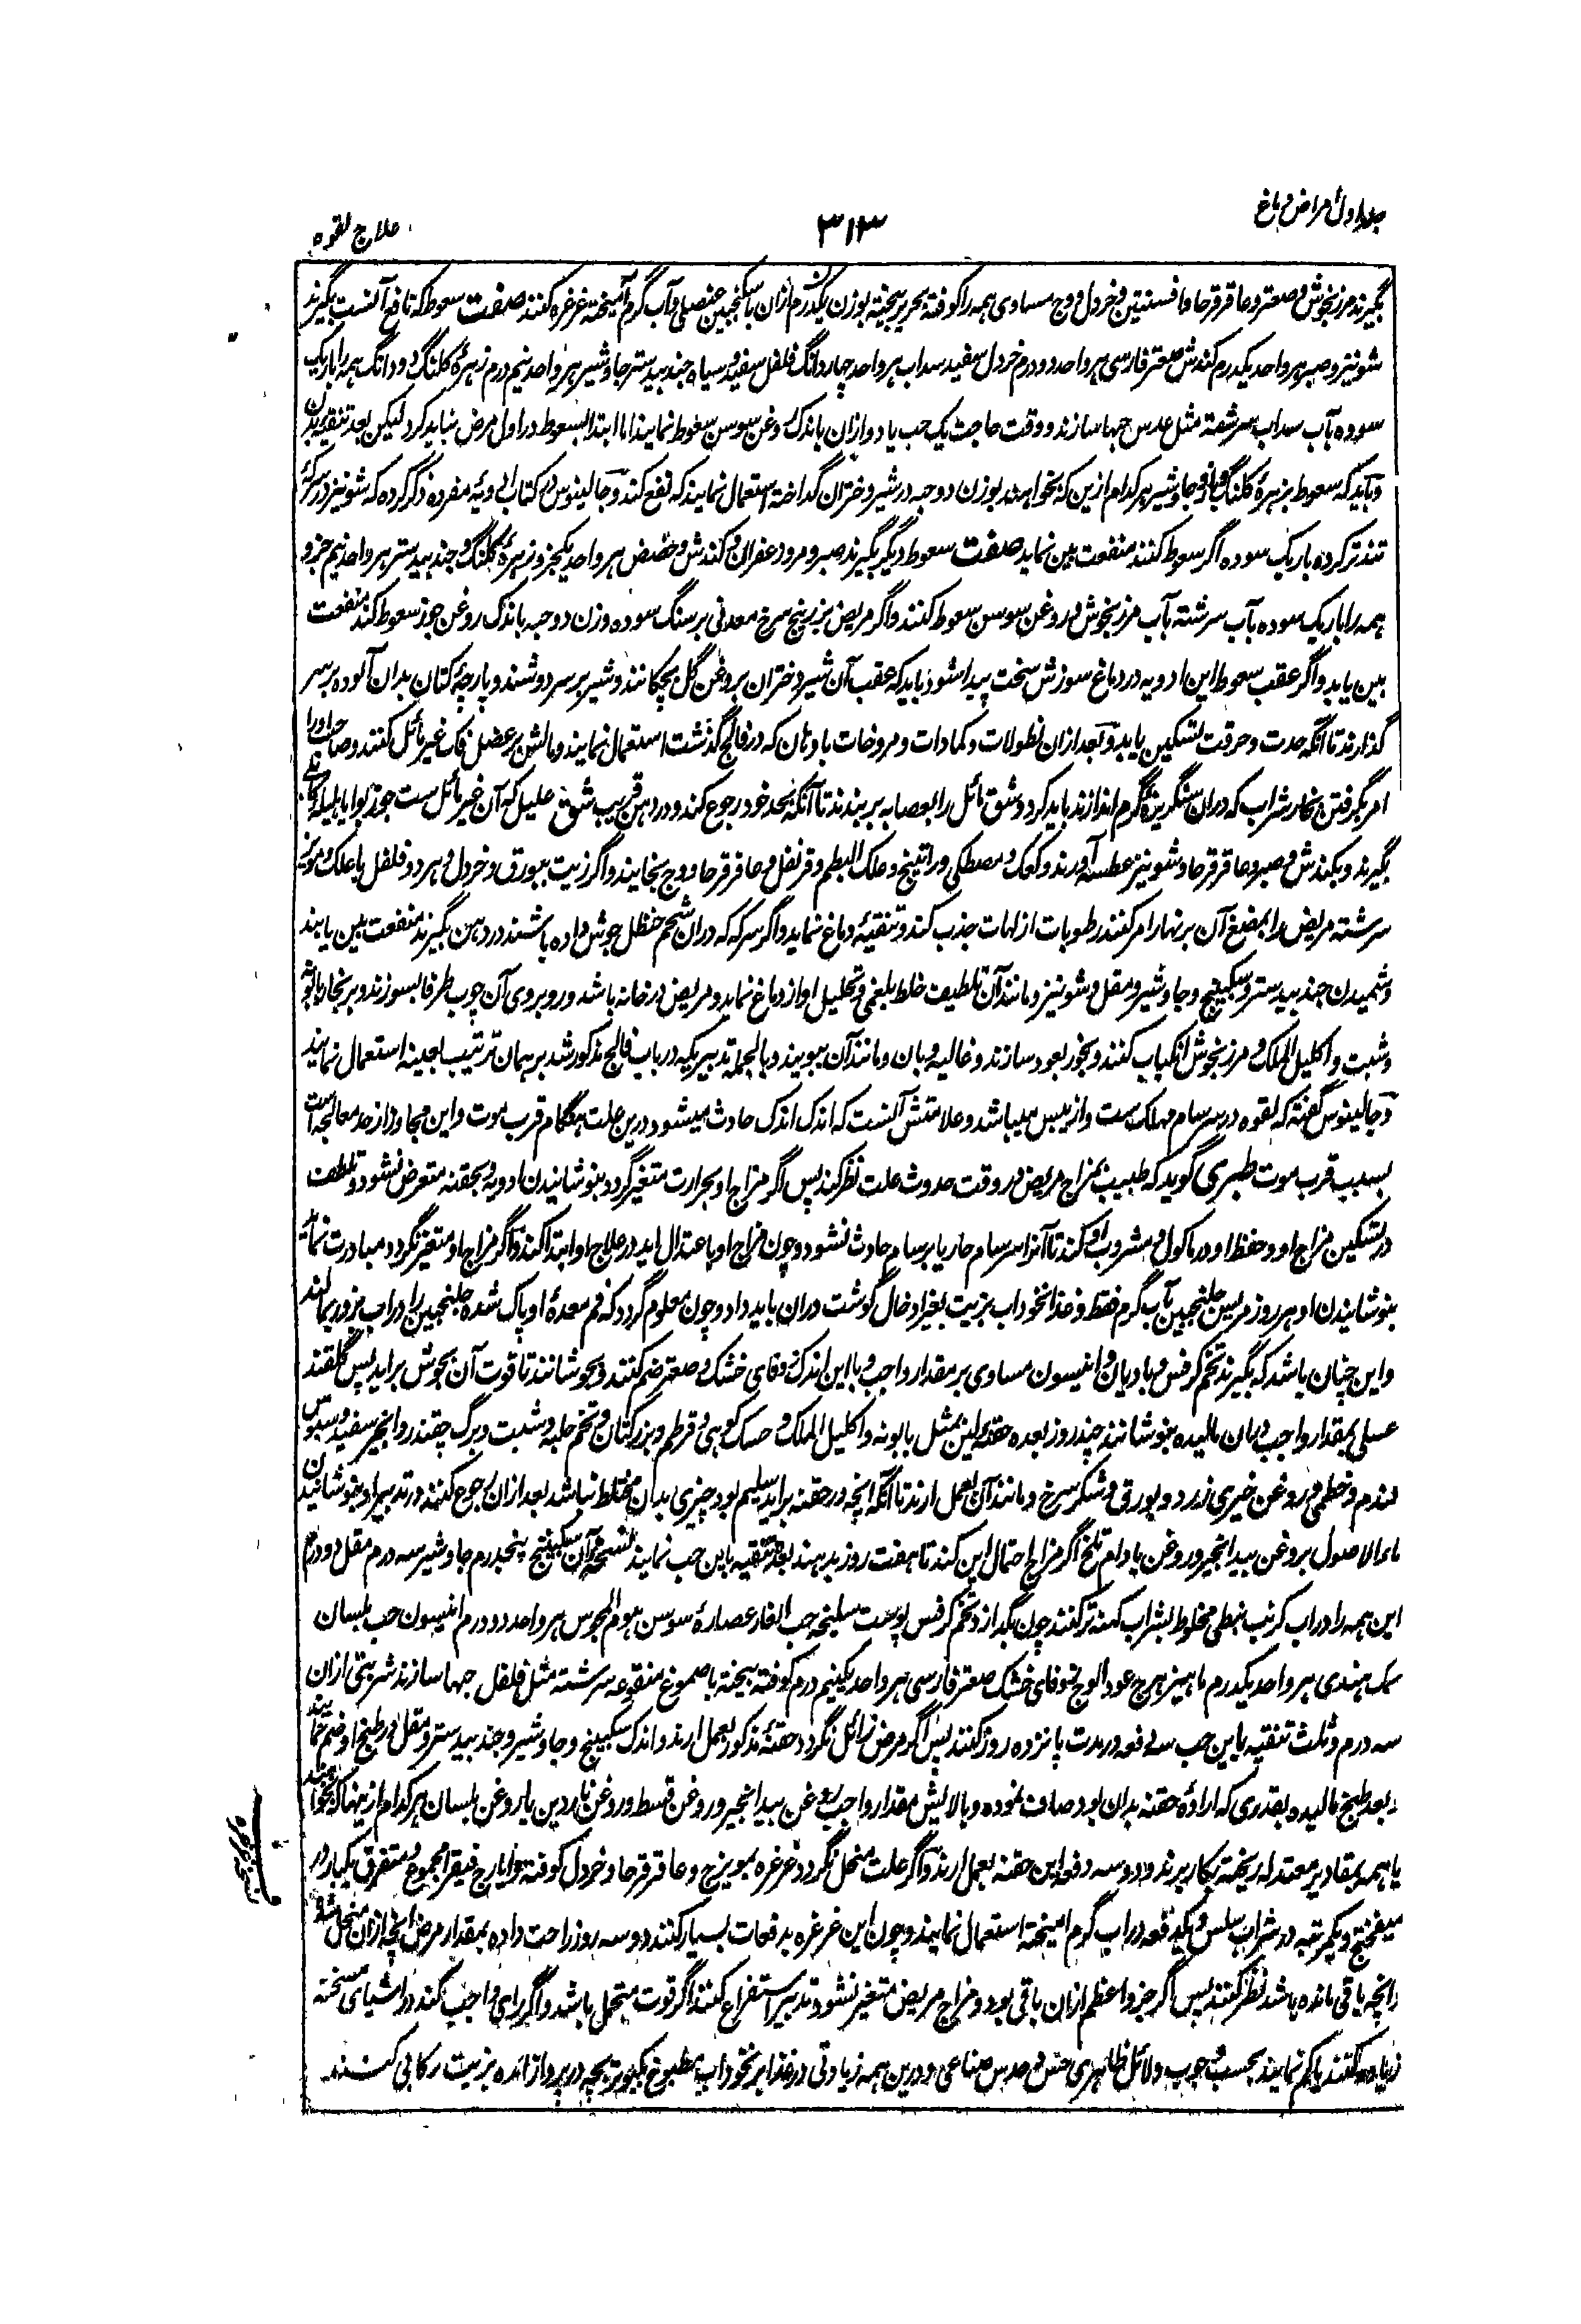 جلد اول امراض دماغ
۳۱۳
علاج لقوه
بگیرند مرزنجوش و صعتر و عاقرقرحا و افسنتین و خردل و وج مساوی همه را کوفته بحریر بیخته بوزن یکدرم ازان باسکنجبین عنصلی و آب گرم آمیخته غرغره کنند صفت سعوط که نافع آنست بگیرند
شونیز و صبر هر واحد یکدرم کندش صعتر فارسی هر واحد دو درم خردل سفید سداب هر واحد چهار دانگ فلفل سفید و سیاه جندبیدستر جاوشیر هر واحد نیم درم زهرهٔ کلنگ دو دانگ همه را باریک
سوده بآب سداب سرشته مثل عدس حبها سازند و وقت حاجت یک حب یا دو ازان باندک روغن سوسن سعوط نمایند اما ابتدا بسعوط در اول مرض نباید کرد لیکن بعد تنقیه بدن
و باید که سعوط بزهرهٔ کلنگ و باز و جاوشیر هر کدام ازین که بخواهند بوزن دو حبه در شیر دختران گداخته استعمال نمایند که نفع کند و جالینوس در کتاب ادویهٔ مفرده ذکر کرده که شونیز در سرکهٔ
تند تر کرده باریک سوده اگر سعوط کنند منفعت بین نماید صفت سعوط دیگر بگیرند صبر و مر و زعفران و کندش و حضض هر واحد یکجزو زهرهٔ کلنگ و جندبیدستر هر واحد نیم جزو
همه را باریک سوده بآب سرشته بآب مرزنجوش و روغن سوسن سعوط کنند و اگر مریض بزرنیخ سرخ معدنی بر سنگ سوده وزن دو حبه باندک روغن جوز سعوط کند منفعت
بین یابد و اگر عقب سعوط این ادویه در دماغ سوزش سخت پیدا شود باید که عقب آن شیر دختران بروغن گل بچکانند و شیر بر سر دوشند و پارچهٔ کتان بدان آلوده بر سر
گذارند تا آنکه حدت و حرقت تسکین یابد و بعد ازان نطولات و کمادات و مروخات با دهان که در فالج گذشت استعمال نمایند و مالش بر عضل فک غیر مائل کنند و صاحب او را
امر بگرفتن بخار شراب که دران سنگریزهٔ گرم اندازند باید کرد و شق مائل را بعصابه بربندند تا آنکه بحد خود رجوع کند و در دهن قریب شق علیل که آن غیر مائل ست جوزبوا یا هلیلهٔ کابلی
بگیرند و بکندش و صبر و عاقرقرحا و شونیز عطسه آورند و کوک و مصطکی و راتینج و علک البطم و قرنفل و عاقرقرحا و وج بخایند و اگر زبیب ببورق و خردل و هر دو فلفل یا علک و مویز
سرشته مریض را بمضغ آن بر نهار امر کنند رطوبات از لهات جذب کند و تنقیهٔ دماغ نماید و اگر سرکه که دران شحم حنظل جوش داده باشند در دهن بگیرند منفعت بین یابند
و شمیدن جندبیدستر و سکبینج و جاوشیر و مقل و شونیز و مانند آن تلطیف خلط بلغمی و تحلیل او از دماغ نماید و مریض در خانه باشد و روبروی آن چوب طرفا بسوزند و بر بخار بابونه
و شبت و اکلیل الملک و مرزنجوش انکباب کنند و بخور بعود سازند و غالیه و بان و مانند آن ببویند و بالجمله تدبیریکه در باب فالج مذکور شد بر همان ترتیب بعینه استعمال نمایند
و جالینوس گفته که لقوه در سرسام مهلک ست و از یبس میباشد و علامتش آنست که اندک اندک حادث میشود درین علت هنگام قرب موت و این متجاوز از حد معالجه است
بسبب قرب موت طبری گوید که طبیب بمزاج مریض در وقت حدوث علت نظر کند پس اگر مزاج او بحرارت متغیر گردد بنوشانیدن ادویه و بحقنه متعرض نشود و تلطف
در تسکین مزاج او و حفظ او در ماکول و مشروب او کند تا آنرا سرسام حار یا برسام حادث نشود و چون مزاج او باعتدال اید در علاج او ابتدا کند و اگر مزاج او متغیر نگردد مبادرت نماید
بنوشانیدن او هر روز مریس جلنجبین بآب گرم فقط و غذا نخوداب بزیت بغیر ادخال گوشت دران باید داد و چون معلوم گردد که فم معدهٔ او پاک شده جلنجبین را در اب بزور بمالند
و این چنان باشد که بگیرند تخم کرفس و بادیان و انیسون مساوی بر مقدار واجب و با این اندک زوفای خشک و صعتر ضم کنند و بجوشانند تا قوت آن بجوش براید پس گلقند
عسلی بمقدار واجب دران مالیده بنوشانند چند روز بعده حقنهٔ لین بمثل بابونه و اکلیل الملک و حسک کوهی و قرطم و بزر کتان و تخم حلبه و شبت و برگ چقندر و انجیر سفید و سبوس
گندم و خطمی و روغن خیری زرد و بورق و شکر سرخ و مانند آن بعمل ارند تا آنکه انچه در حقنه براید سلیم بود و چیزی بدان مختلط نباشد بعد ازان رجوع کنند در تدبیر او بنوشانیدن
ماء الاصول بروغن بیدانجیر و روغن بادام تلخ اگر مزاج احتمال این کند تا هفت روز بدهند بعده تنقیه باین حب نمایند نسخه آن سکبینج پنجدرم جاوشیر سه درم مقل دو درم
این همه را در اب کرنب نبطی مخلوط بشراب کهنه تر کنند چون بگدازد تخم کرفس پوست سلیخه حب الغار عصارهٔ سوسن هوم المجوس هر واحد دو درم انیسون حب بلسان
نمک هندی هر واحد یکدرم ماهیزهرج عود الوج زوفای خشک صعتر فارسی هر واحد یکنیم درم کوفته بیخته با صموغ منقوعه سرشته مثل فلفل حبها سازند شربتی ازان
سه درم و ثلث تنقیه باین حب سه دفعه در مدت پانزده روز کنند پس اگر مرض زائل نگردد حقنهٔ مذکور بعمل ارند و اندک سکبینج و جاوشیر و جندبیدستر و مقل در طبخ او ضم نمایند
و بعد طبخ مالیده بقدری که ارادهٔ حقنه بدان بود صاف نموده و بالایش مقدار واجب روغن بیدانجیر و روغن قسط و روغن ناردین یا روغن بلسان هر کدام ازینها که بخواهند
یا همه بمقادیر معتدله ریخته بکار برند و دو سه دفعه این حقنه بعمل ارند و اگر علت منحل نگردد غرغره بمویزج و عاقرقرحا و خردل کوفته و ایارج فیقرا مجموع و متفرق یکبار در
میفختج و یکمرتبه در شراب سلس و یکدفعه در اب گرم امیخته استعمال نمایند و چون این غرغره بدفعات بسیار کنند دو سه روز راحت داده بمقدار مرض انچه ازان منحل شده
و انچه باقی مانده باشد نظر کنند پس اگر جزو اعظم ازان باقی بود و مزاج مریض متغیر نشود تدبیر استفراغ کنند اگر قوت متحمل باشد و اگر رای واجب کند در اشیای مسخنه
زیاده کنند یا کم نمایند بحسب وجوب دلائل ظاهری حسی و حدس صناعی و درین همه زیادتی در غذا بر نخوداب مطبوخ بکبوتر بچه در پرواز امده بزیت رکابی کنند
نسخه غرغره